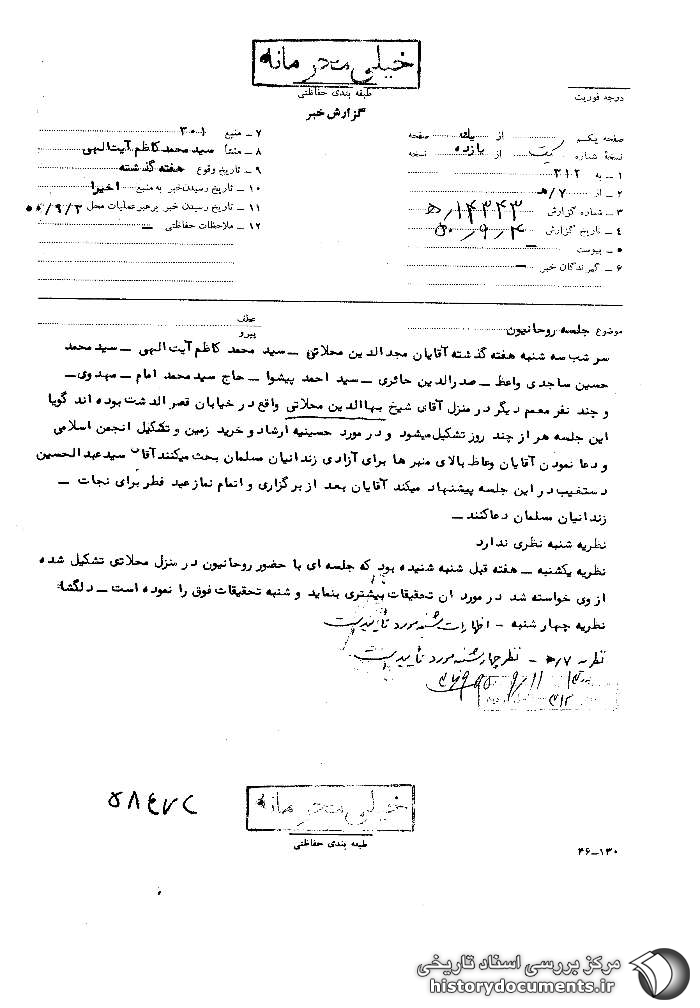 خیلی محرمانه
طبقه بندی حفاظتی
گزارش خبر
درجه فوریت
صفحه یکم از یک صفحه
نسخهٔ شماره یک از یازده نسخه
۱ ـ به ۳۱۲
۲ ـ از ۷/ه
۳ ـ شماره گزارش ۱۴۳۴۳/ه
۴ ـ تاریخ گزارش ۵۰/۹/۴
۵ ـ پیوست
۶ ـ گیرندگان خبر ـ
۷ ـ منبع ۳۰۱
۸ ـ منشأ سید محمد کاظم آیت الهی
۹ ـ تاریخ وقوع هفته گذشته
۱۰ ـ تاریخ رسیدن خبر به منبع اخیرا
۱۱ ـ تاریخ رسیدن خبر برهبر عملیات محل ۵۰/۹/۲
۱۲ ـ ملاحظات حفاظتی ـ
موضوع جلسه روحانیون
عطف
پیرو
سر شب سه شنبه هفته گذشته آقایان مجد الدین محلاتی ـ سید محمد کاظم آیت الهی ـ سید محمد
حسین ساجدی واعظ ـ صدرالدین حائری ـ سید احمد پیشوا ـ حاج سید محمد امام ـ مهدوی ـ
و چند نفر معمم دیگر در منزل آقای شیخ بهاالدین محلاتی واقع در خیابان قصر الدشت بوده اند گویا
این جلسه هر از چند روز تشکیل میشود و در مورد حسینیه ارشاد و خرید زمین و تشکیل انجمن اسلامی
و دعا نمودن آقایان وعاظ بالای منبر ها برای آزادی زندانیان مسلمان بحث میکنند آقای سید عبدالحسین
دستغیب در این جلسه پیشنهاد میکند آقایان بعد از برگزاری و اتمام نماز عید فطر برای نجات ـ
زندانیان مسلمان دعا کنند ـ
نظریه شنبه نظری ندارد
نظریه یکشنبه ـ هفته قبل شنبه شنیده بود که جلسه ای با حضور روحانیون در منزل محلاتی تشکیل شده
از وی خواسته شد در مورد آن تحقیقات بیشتری بنماید و شنبه تحقیقات فوق را نموده است ـ دلگشا
نظریه چهارشنبه ـ اظهارات شنبه مورد تأیید است
نظریه ۷/ه ـ نظر چهارشنبه مورد تأیید است
۳۱۲
خیلی محرمانه
طبقه بندی حفاظتی
۴۶-۱۳۰
مرکز بررسی اسناد تاریخی
historydocuments.ir